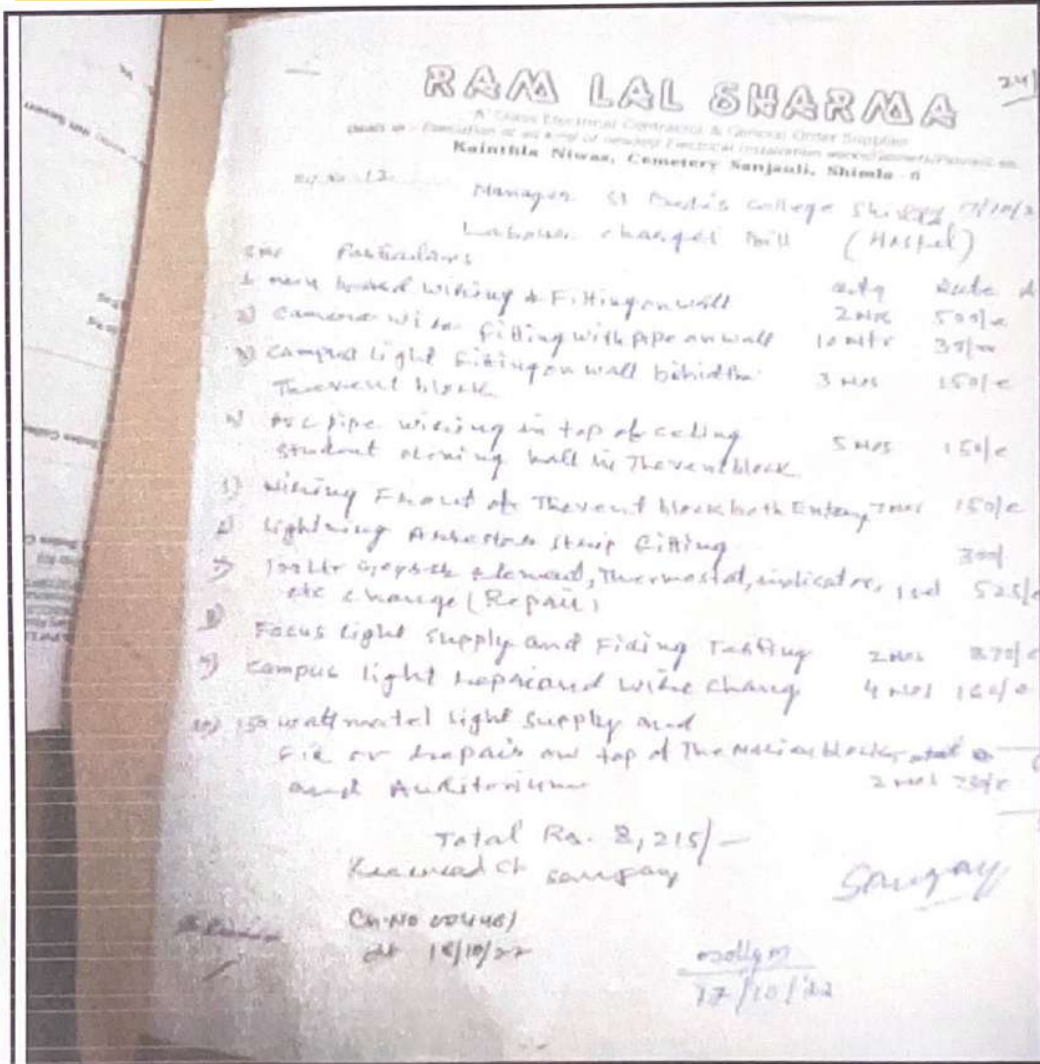 24/
RAM LAL SHARMA
'A' Class Electrical Contractor & General Order Supplier
Kainthla Niwas, Cemetery Sanjauli, Shimla - 6
Manager St Bede's College Shimla 17/10/2
Labour charges Bill (Hostel)
Particulars
Qty Rate A
1 new board wiring & Fitting on wall 2 Nos 500/-
2) Camera wire fitting with pipe on wall 10 Mtr 30/-
3) Campus Light Fitting on wall behind the 3 Nos 150/-
Thevenet block
4) PVC pipe wiring in top of celing 5 Nos 150/-
student dining hall in Thevenet block
5) Wiring Front of Thevenet block both Entery 7 Nos 150/-
6) Lightning Arrestor strip fitting 300/
7) Geyser element, Thermostat, indicator, 525/-
etc change (Repair)
8) Focus Light supply and Fixing Testing 2 Nos 870/-
9) Campus Light Repair and wire chang 4 Nos 160/-
10) 150 watt metal Light supply and
Fix or Repair on top of The Marian block
and Auditorium 2 Nos
Total Rs. 8,215/-
Received Ch
Sangay
Ch No
dt 18/10/22
17/10/22